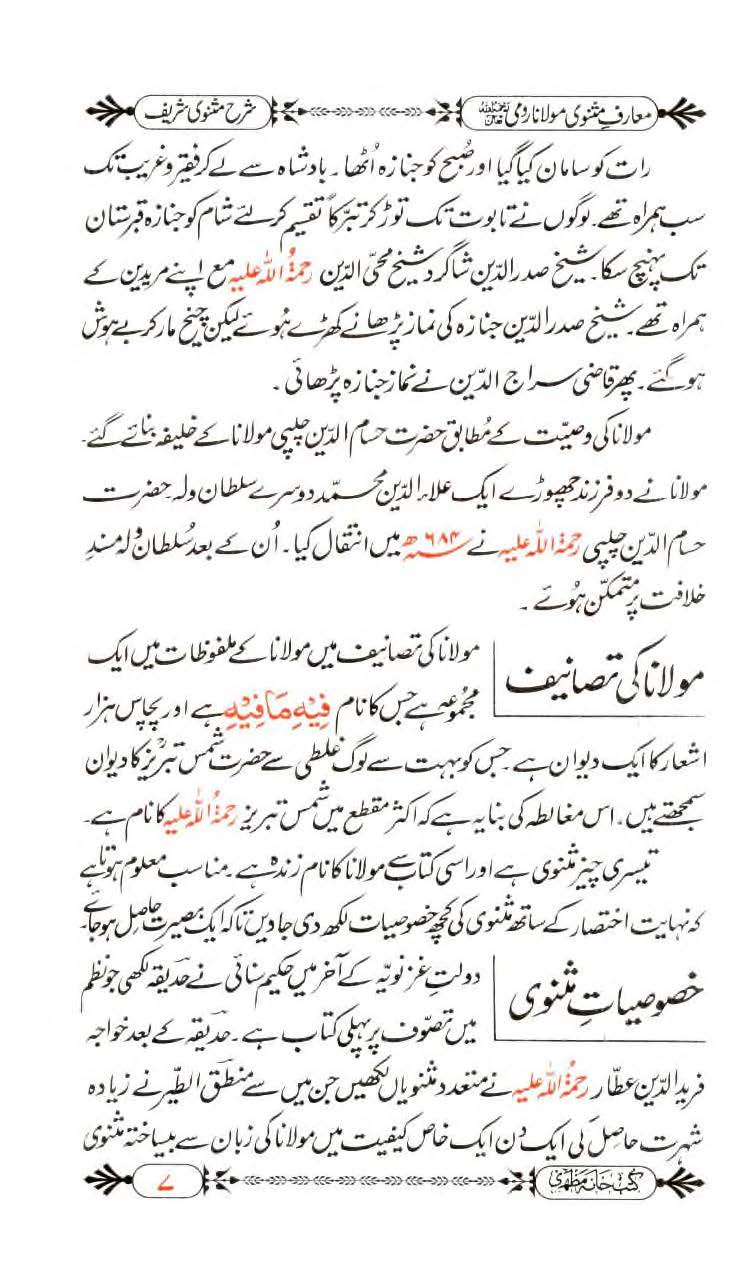 معارفِ مثنوی مولانا رومی رحمۃ اللہ علیہ
شرح مثنوی شریف
رات کو سامان کیا گیا اور صُبح کو جنازہ اُٹھا۔ بادشاہ سے لے کر فقیر و غریب تک
سب ہمراہ تھے۔ لوگوں نے تابوت تک توڑ کر تبرّکاً تقسیم کر لئے شام کو جنازہ قبرستان
تک پہنچ سکا۔ شیخ صدر الدّین شاگرد شیخ محیّ الدّین رحمۃُ اللّٰہ علیہ مع اپنے مریدین کے
ہمراہ تھے۔ شیخ صدر الدّین جنازہ کی نماز پڑھانے کھڑے ہُوئے لیکن چیخ مار کر بے ہوش
ہو گئے۔ پھر قاضی سراج الدّین نے نماز جنازہ پڑھائی۔
مولانا کی وصیّت کے مُطابق حضرت حسام الدّین چلپی مولانا کے خلیفہ بنائے گئے۔
مولانا نے دو فرزند چھوڑے ایک علاء الدّین محمّد دوسرے سلطان ولد۔ حضرت
حسام الدّین چلپی رحمۃُ اللّٰہ علیہ نے ۶۸۴ھ میں انتقال کیا۔ اُن کے بعد سُلطان ولد مسندِ
خلافت پر متمکّن ہُوئے۔
مولانا کی تصانیف
مولانا کی تصانیف میں مولانا کے ملفوظات میں ایک
مجمُوعہ ہے جس کا نام فِیْہِ مَا فِیْہِ ہے اور پچاس ہزار
اشعار کا ایک دیوان ہے۔ جس کو بہت سے لوگ غلطی سے حضرت شمس تبریزؒ کا دیوان
سمجھتے ہیں۔ اس مغالطہ کی بنا یہ ہے کہ اکثر مقطع میں شمس تبریز رحمۃُ اللّٰہ علیہ کا نام ہے۔
تیسری چیز مثنوی ہے اور اسی کتاب سے مولانا کا نام زندہ ہے۔ مناسب معلوم ہوتا ہے
کہ نہایت اختصار کے ساتھ مثنوی کی کچھ خصوصیات لکھ دی جاویں تاکہ ایک بصیرت حاصِل ہو جائے۔
خصوصیاتِ مثنوی
دولتِ غزنویّہ کے آخر میں حکیم سنائی نے حدیقہ لکھی جو نظم
میں تصوّف پر پہلی کتاب ہے۔ حدیقہ کے بعد خواجہ
فرید الدّین عطّار رحمۃُ اللّٰہ علیہ نے متعدد مثنویاں لکھیں جن میں سے منطق الطّیر نے زیادہ
شہرت حاصِل کی ایک دن ایک خاص کیفیت میں مولانا کی زبان سے بیساختہ مثنوی
کتب خانہ مظہری
۷